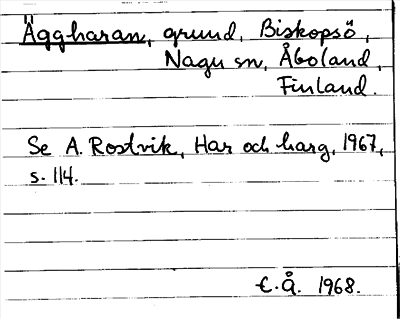 Äggharan, grund, Biskopsö,
Nagu sn, Åboland,
Finland.
Se A. Rostvik, Har och harg, 1967,
s. 114.
E.Å. 1968.